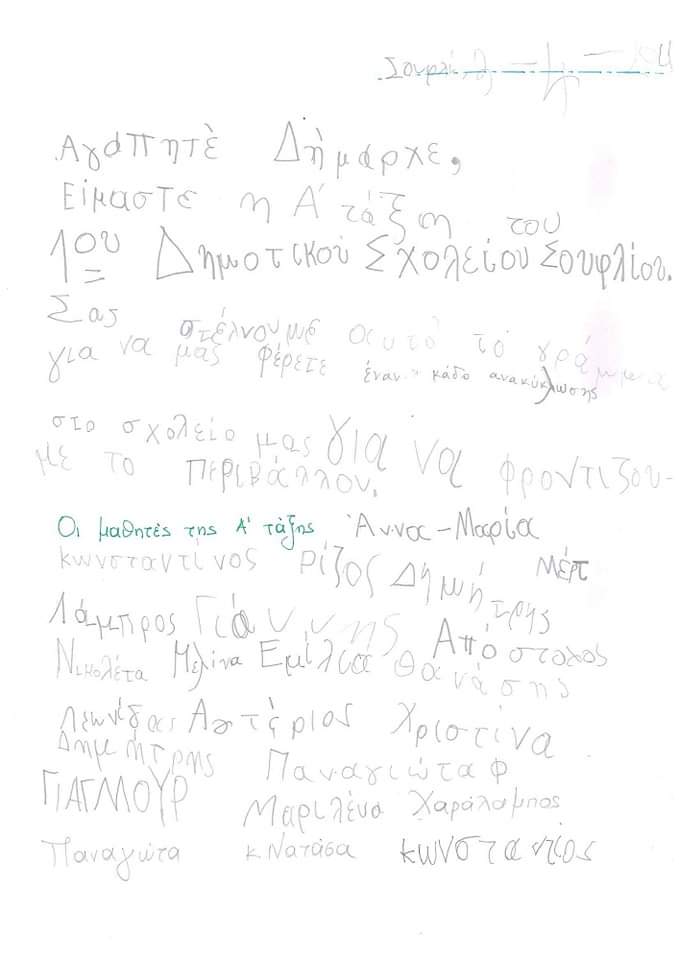 Σουφλί
Αγάπητὲ Δήμαρχε,
Είμαστε η Α' τάξη του
1ου Δημοτικού Σχολείου Σουφλίου.
Σας στέλνουμε αυτό τό γράμμα
για να μας φέρετε έναν κάδο ανακύκλωσης
στο σχολείο μας για να φροντίζου-
με το περιβάλλον.
Οι μαθητές της Α' τάξης Άννα-Μαρία
κωνσταντίνος Ρίζος Δημήτρης Μέρτ
Λάμπρος Γιάννης Απόστολος
Νικολέτα Μελίνα Εμίλια θανάσης
Λεωνίδας Αστέριος Χριστίνα
Δημήτρης Παναγιώτα Φ
ΓΙΑΓΜΟΥΡ Μαριλένα Χαράλαμπος
Παναγώτα κ. Νατάσα κωνσταντίος